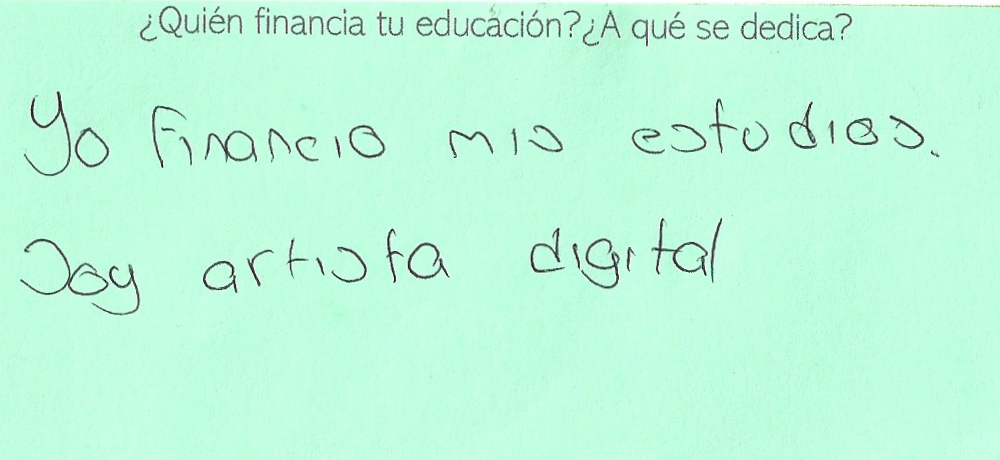 ¿Quién financia tu educación?¿A qué se dedica?
Yo financio mis estudios.
Soy artista digital